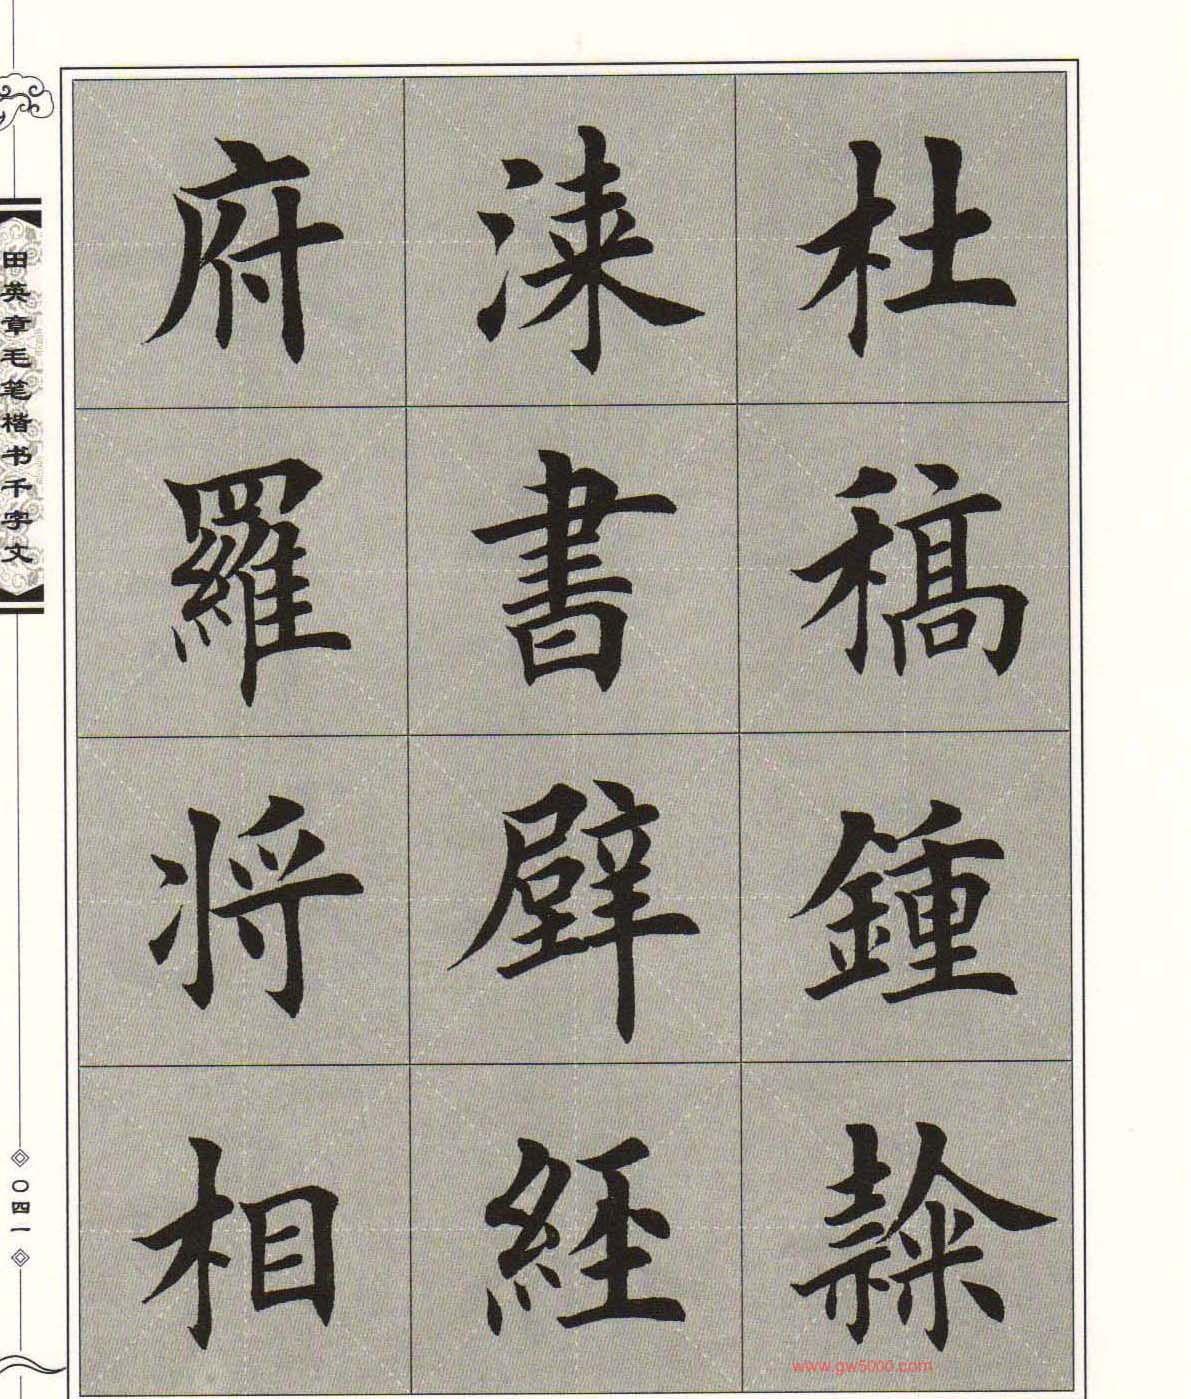 杜稿鍾隸
漆書壁經
府羅将相
田英章毛笔楷书千字文
〇四一
www.gw5000.com